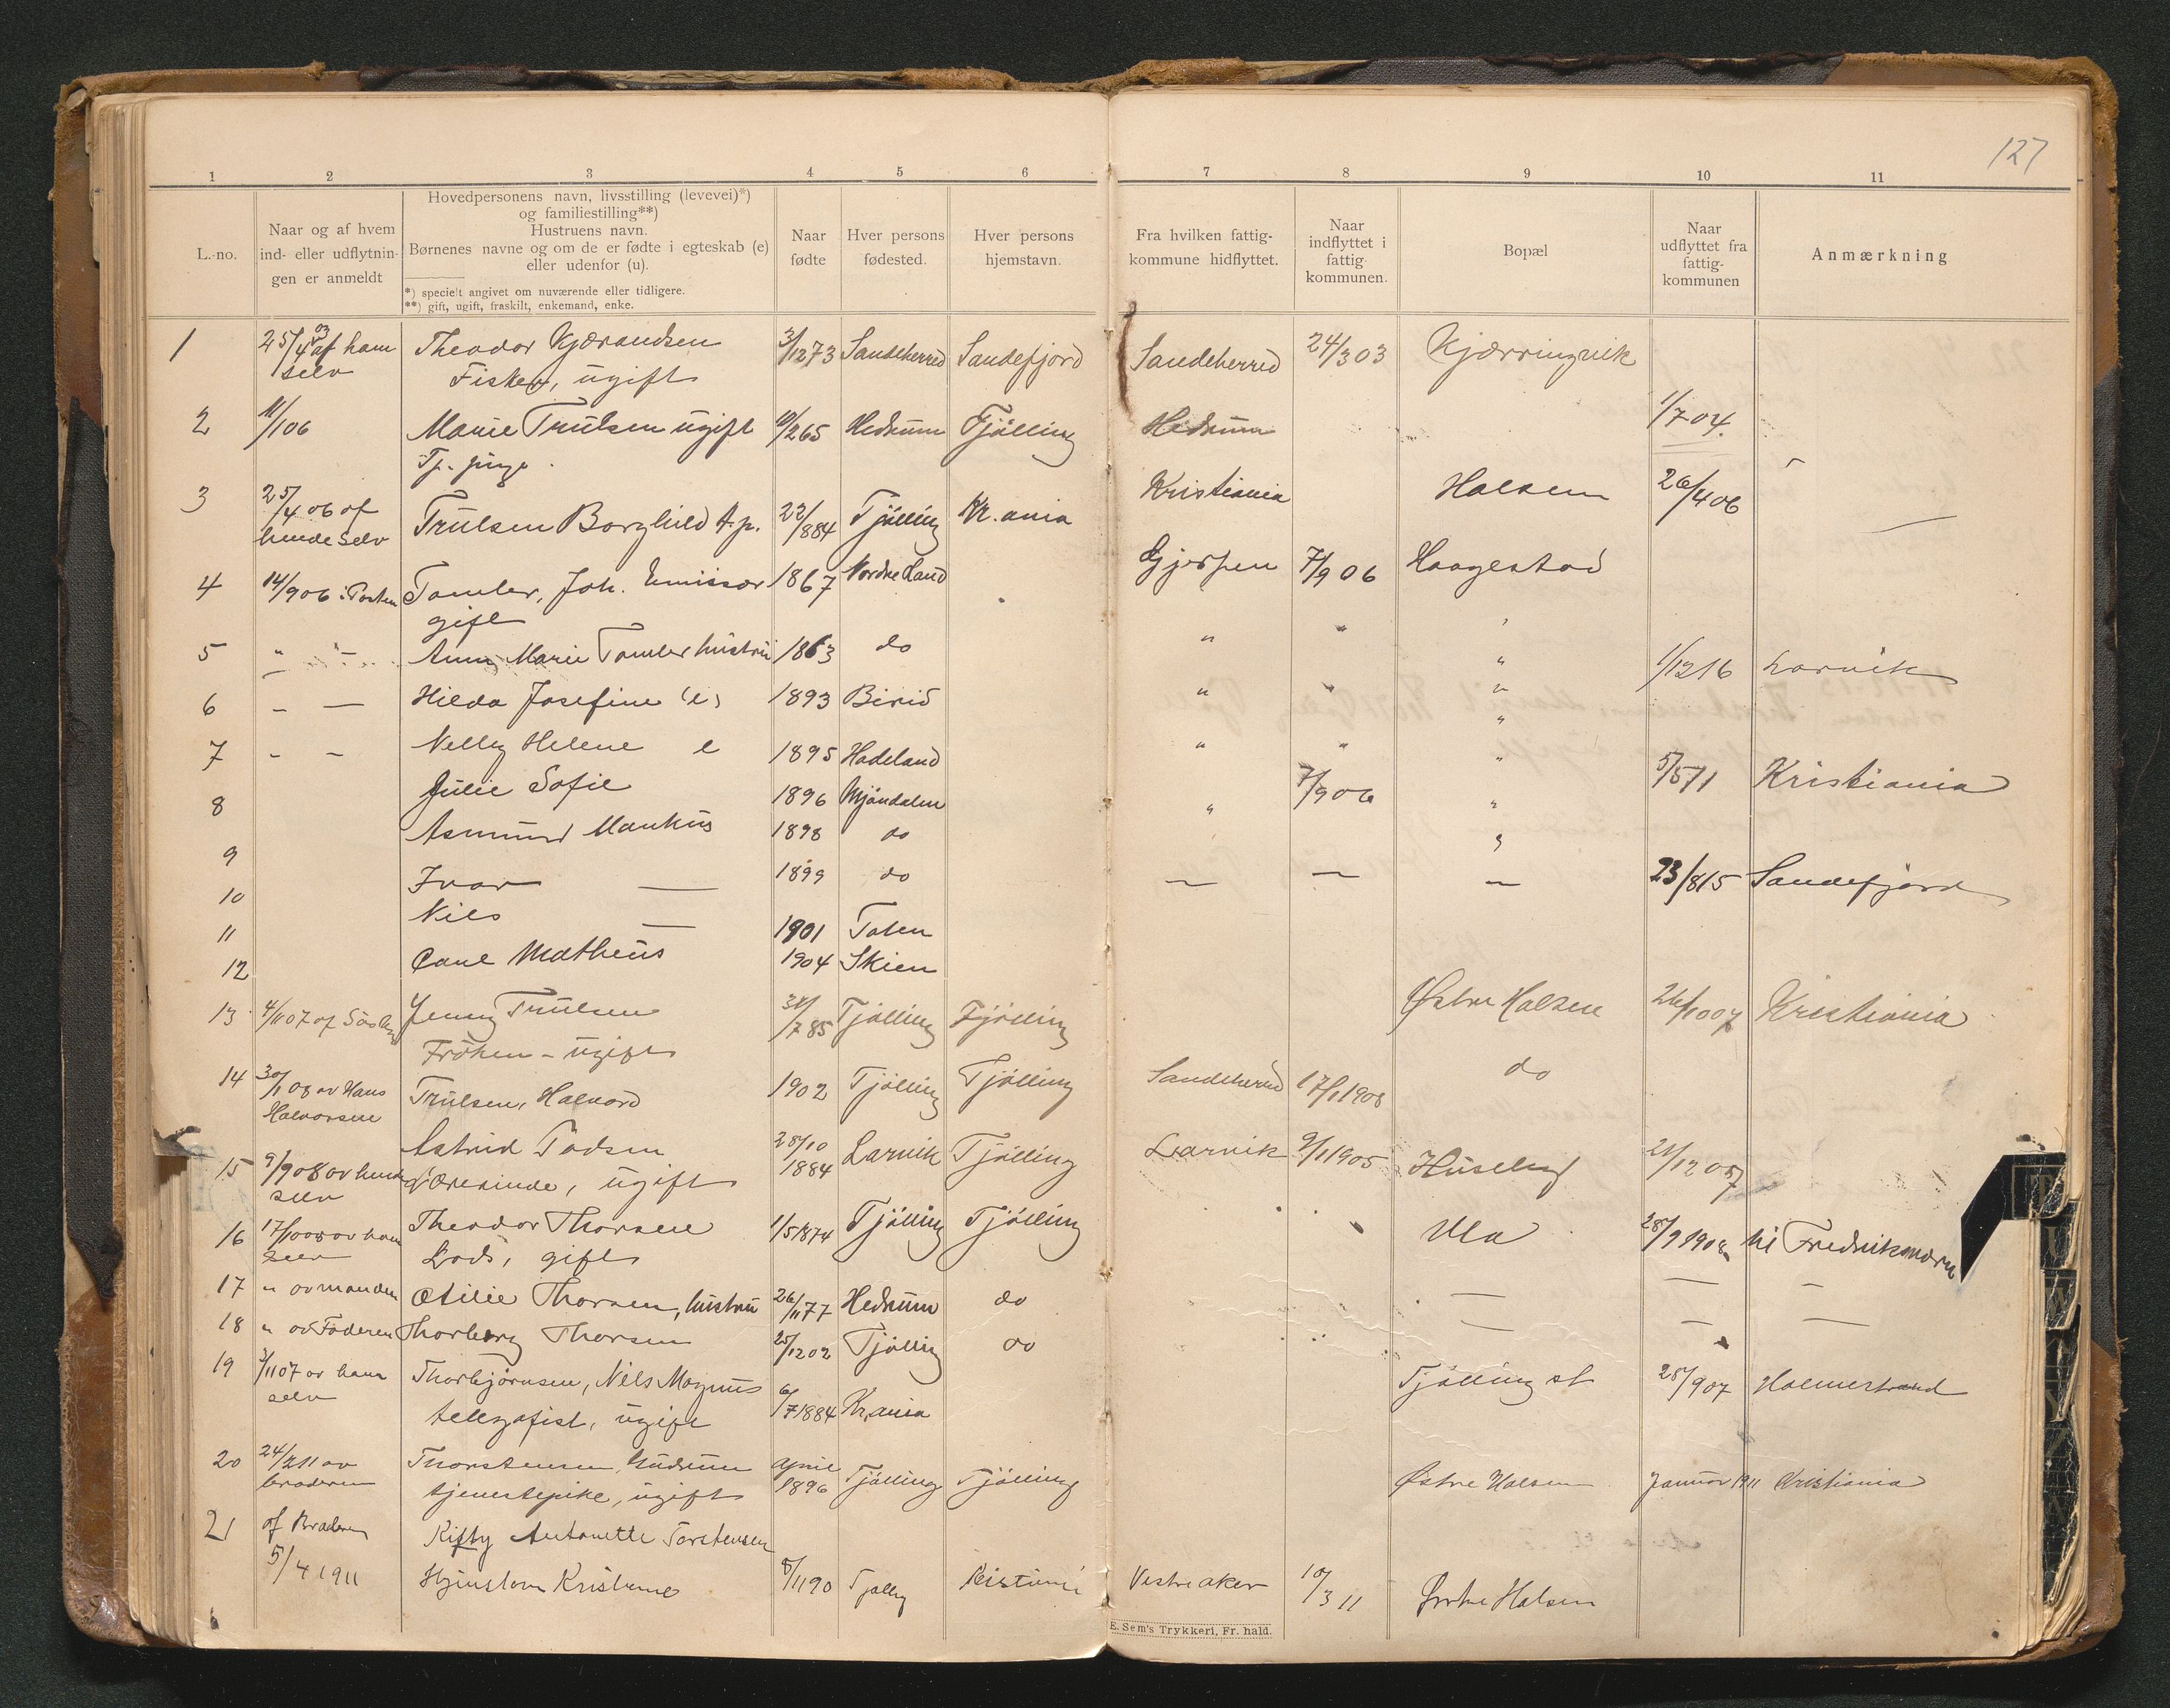 127
1 2 3 4 5 6 7 8 9 10 11
L.-no.
Naar og af hvem
ind- eller udflytnin-
gen er anmeldt
Hovedpersonens navn, livsstilling (levevei)*)
og familiestilling**)
Hustruens navn.
Børnenes navne og om de er fødte i egteskab (e)
eller udenfor (u).
*) specielt angivet om nuværende eller tidligere.
**) gift, ugift, fraskilt, enkemand, enke.
Naar
fødte
Hver persons
fødested.
Hver persons
hjemstavn.
Fra hvilken fattig-
kommune hidflyttet.
Naar
indflyttet i
fattig
kommunen.
Bopæl
Naar
udflyttet fra
fattig-
kommunen
Anmærkning
1 25/4 03 af ham Theodor Kjærandsen 3/1273 Sandeherred Sandefjord Sandeherred 24/303 Kjærringvik
selv Fisker, ugift
2 11/106 Marie Trulsen ugift 10/265 Hedrum Tjølling Hedrum 1/704.
Tj. pige
3 25/4 06 af Trulsen Borghild t.p. 22/884 Tjølling Kr.ania Kristiania Halsen 26/406
hende selv
4 14/906 : Posten Tomler, Joh. Emissær 1867 Nordre Land Gjerpen 7/906 Haagestad
gift
5 " " Anna Marie Tomler hustru 1863 do " " " 1/1216 Larvik
6 - — Hilda Josefine (e) 1893 Birid " " "
7 - - Nelly Helene e 1895 Hadeland " " "
8 Julie Sofie 1896 Mjøndalen " 7/906 " 5/511 Kristiania
9 Asmund Markus 1898 do
10 Ivar — 1899 do — — — 23/815 Sandefjord
11 Nils — 1901 Toten
12 Carl Matheus 1904 Skien
13 4/1107 af Jenny Trulsen 31/785 Tjølling Tjølling Østre Halsen 26/1007 Kristiania
Frøken - ugift
14 30/1 08 av Hans Trulsen, Halvord 1902 Tjølling Tjølling Sandeherred 17/1 1908 do
Halvorsen
15 9/908 av hende Astrid Todsen 28/10 1884 Larvik Tjølling Larvik 9/11905 Huseby 21/1205
selv Lærerinde, ugift
16 17/1008 av ham Theodor Thorsen 1/51874 Tjølling Tjølling Ula 28/91908 til Fredriksværn
selv Lods, gift
17 " av manden Otilie Thorsen, hustru 26/1177 Hedrum do — — —
18 " av Faderen Thorberg Thorsen 25/1202 Tjølling do — — —
19 3/1107 av ham Thorbjørnsen, Nils Magnus 6/71884 Kr.ania Tjølling st 28/907 Holmestrand
selv telegrafist, ugift
20 24/211 av Thorstensen, Gudrun april 1896 Tjølling Tjølling Østre Halsen Januar 1911 Kristiania
broderen tjenestepike, ugift
21 af Broderen Kitty Antonette Torstensen
5/4 1911 8/1190 Kristiania Vestre aker 10/3 11 Østre Halsen
E. Sem's Trykkeri, Fr. hald.